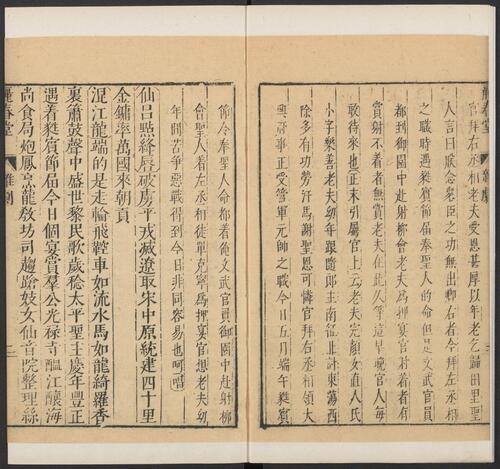 麗春堂 雜劇
官拜右丞相老夫受恩甚厚以年老乞歸田里聖
人言曰朕念衆臣之功無出卿右者今拜左丞相
之職時遇蕤賓節届奉聖人的命但是文武官員
都到御園中赴射柳會老夫爲押宴官射着者有
賞射不着者無賞老夫在此久等這早晚官人每
敢待來也正末引屬官上云老夫完顔女直人氏
小字樂善老夫幼年跟隨郎主南征北討東蕩西
除多有功勞汗馬謝聖恩可憐官拜右丞相領大
興府事正受管軍元帥之職今日五月端午蕤賓
節令奉聖人命都着俺文武官員御園中赴射柳
會聖人着左丞相徒單克寧爲押宴官想老夫幼
年間苦爭惡戰得到今日非同容易也呵唱
仙呂點絳唇破虜平戎滅遼取宋中原統建四十里
金鏞率萬國來朝貢
混江龍端的是走輪飛鞚車如流水馬如龍綺羅香
裏簫鼓聲中盛世黎民歌歲稔太平聖主慶年豐正
遇着蕤賓節届今日個宴賞羣公光祿寺醞江釀海
尚食局炮鳳烹龍教坊司趨蹌妓女仙音院整理絲
麗春堂 雜劇